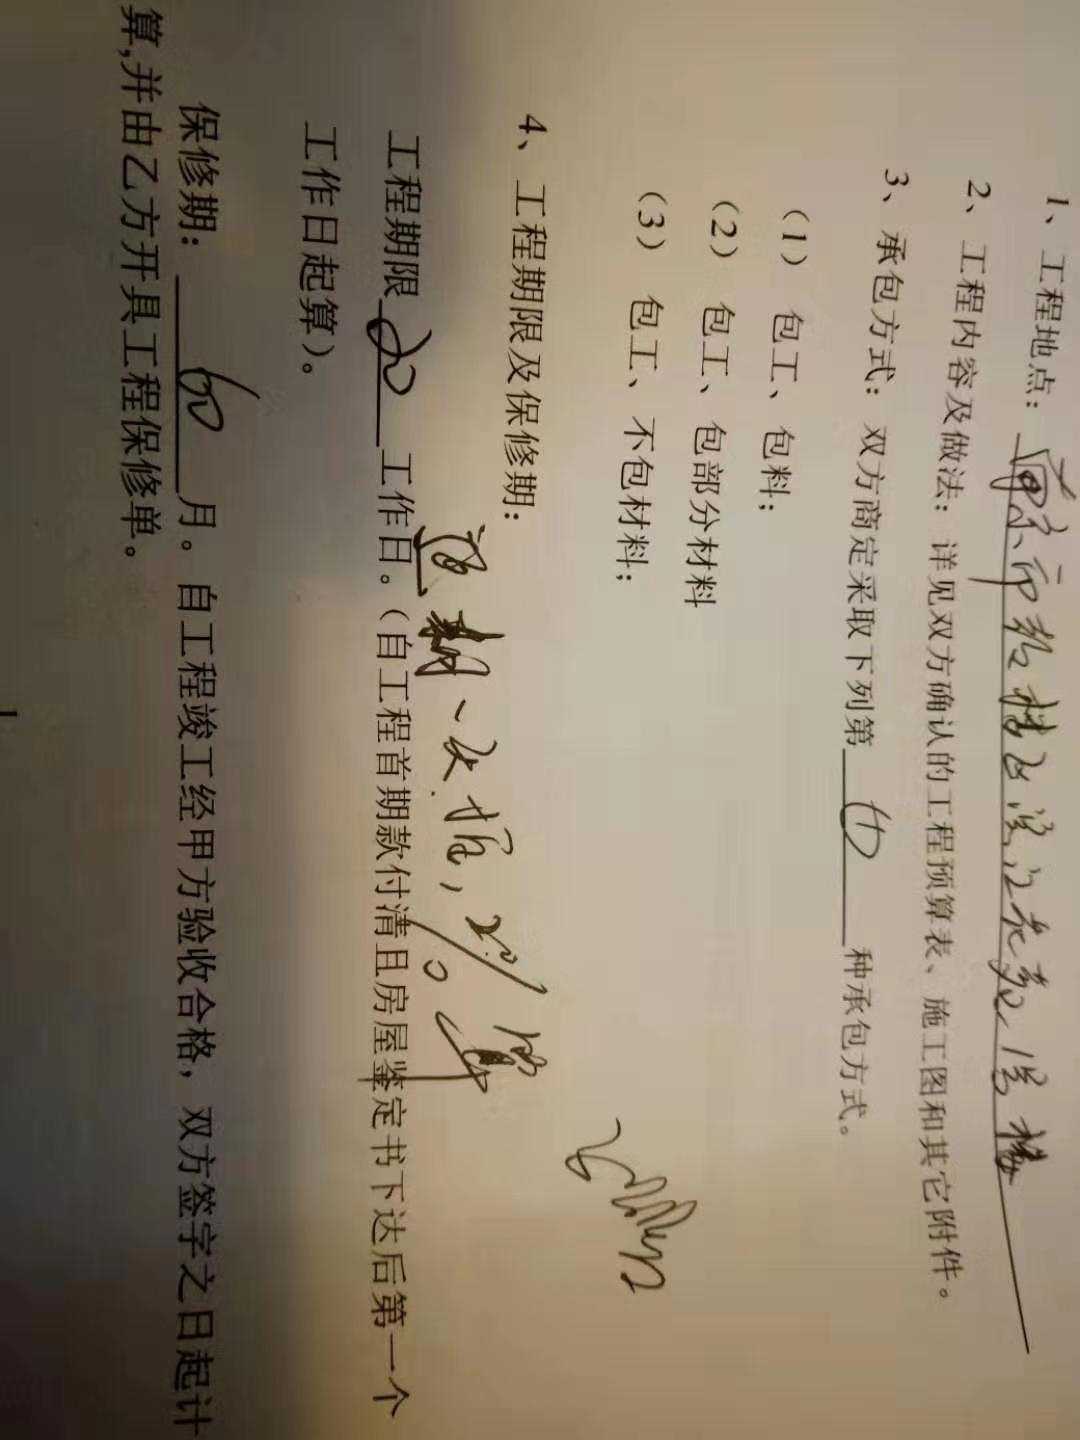 1、工程地点：南京市鼓楼区
2、工程内容及做法：详见双方确认的工程预算表、施工图和其它附件。
3、承包方式：双方商定采取下列第 (1) 种承包方式。
(1) 包工、包料；
(2) 包工、包部分材料
(3) 包工、不包材料；
4、工程期限及保修期：
逾期一天 20%
工程期限 20 工作日。（自工程首期款付清且房屋鉴定书下达后第一个
工作日起算）。
保修期： 60 月。自工程竣工经甲方验收合格，双方签字之日起计
算,并由乙方开具工程保修单。
1